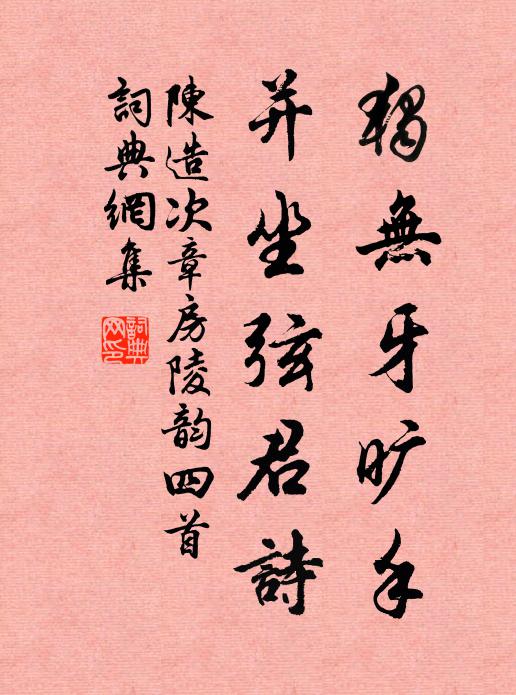 獨無牙旷手
并坐弦君詩
陳造次章房陵韵四首
詞典網集
詞典網印